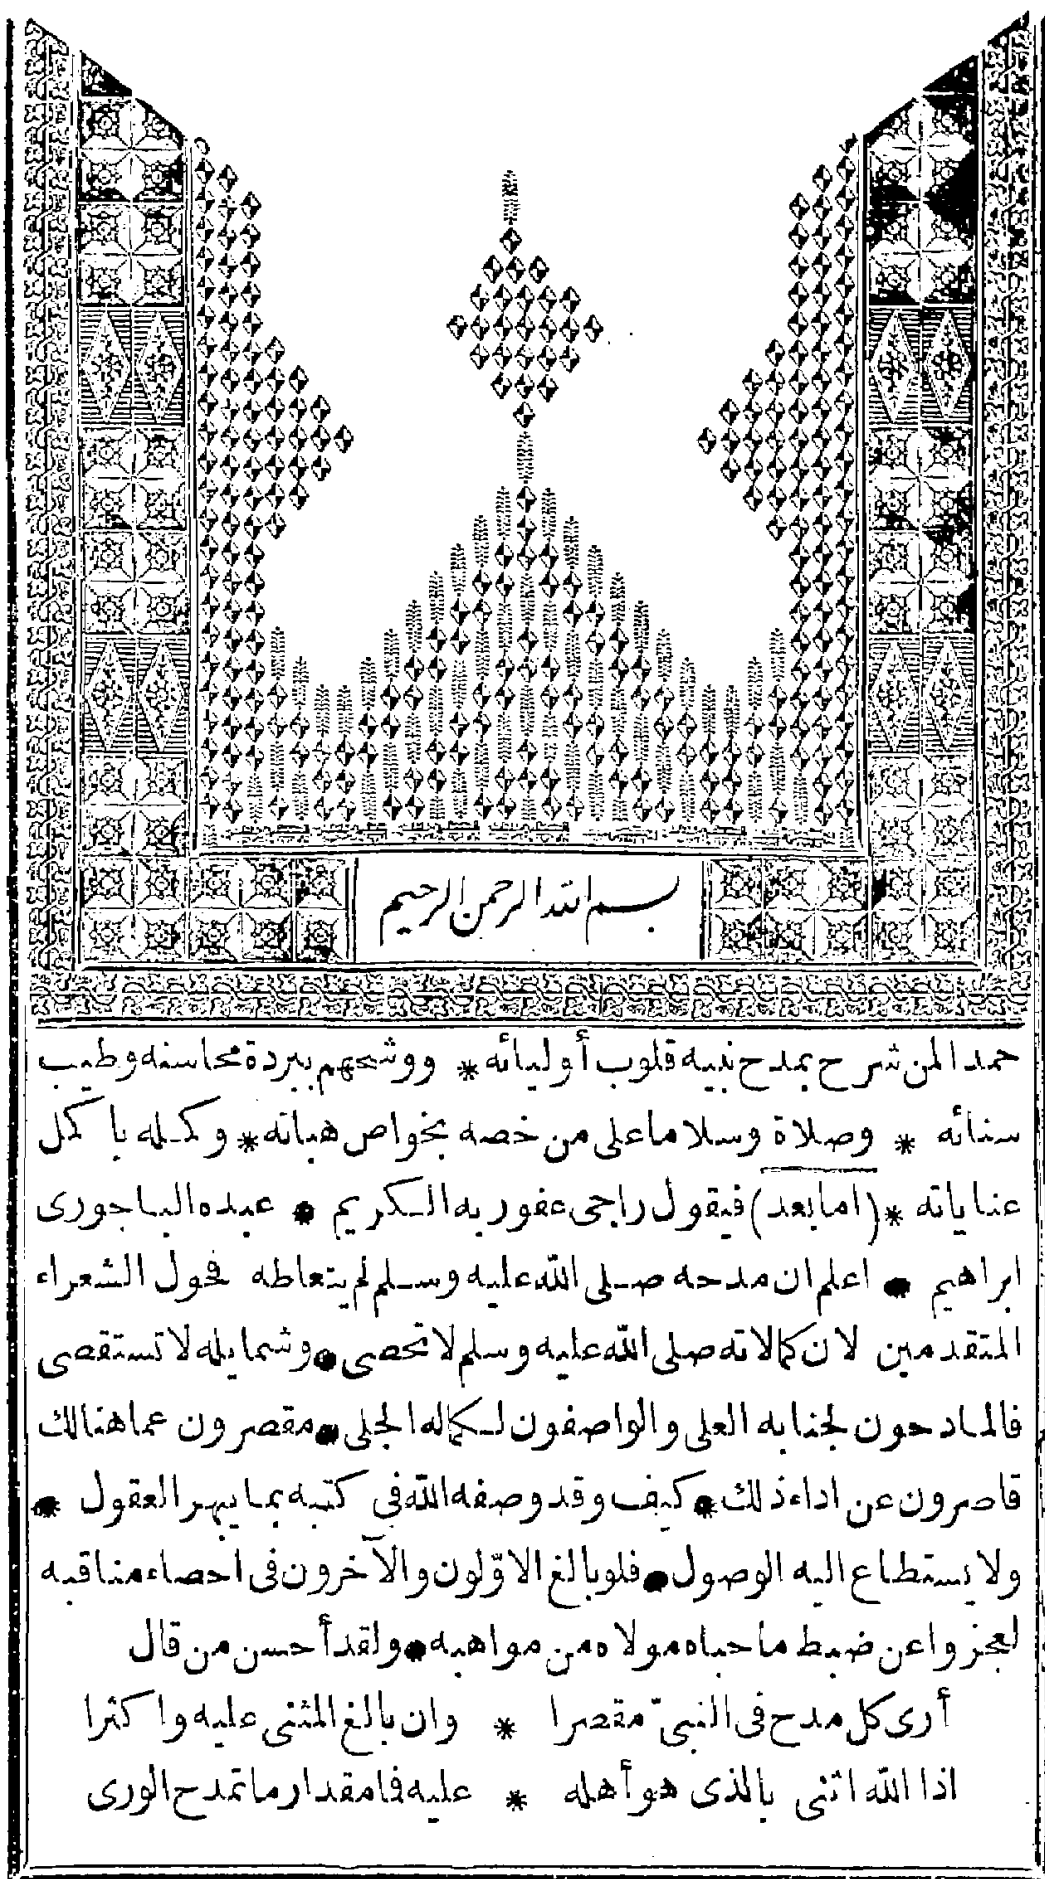 بسم الله الرحمن الرحيم
حمدا لمن شرح بمدح نبيه قلوب أوليائه * ووشحهم ببردة محاسنه وطيب
سنائه * وصلاة وسلاما على من خصه بخواص هباته * وكمله باكمل
عناياته * (اما بعد) فيقول راجى عفو ربه الكريم * عبده الباجورى
ابراهيم * اعلم ان مدحه صلى الله عليه وسلم لم يتعاطه فحول الشعراء
المتقدمين لان كمالاته صلى الله عليه وسلم لا تحصى * وشمايله لا تستقصى
فالمادحون لجنابه العلى والواصفون لكماله الجلى * مقصرون عما هنالك
قاصرون عن اداء ذلك * كيف وقد وصفه الله فى كتبه بما يبهر العقول *
ولا يستطاع اليه الوصول * فلو بالغ الاوّلون والآخرون فى احصاء مناقبه
لعجزوا عن ضبط ما حباه مولاه من مواهبه * ولقد أحسن من قال
أرى كل مدح فى النبىّ مقصرا * وان بالغ المثنى عليه واكثرا
اذا الله اثنى بالذى هو أهله * عليه فا مقدار ما تمدح الورى